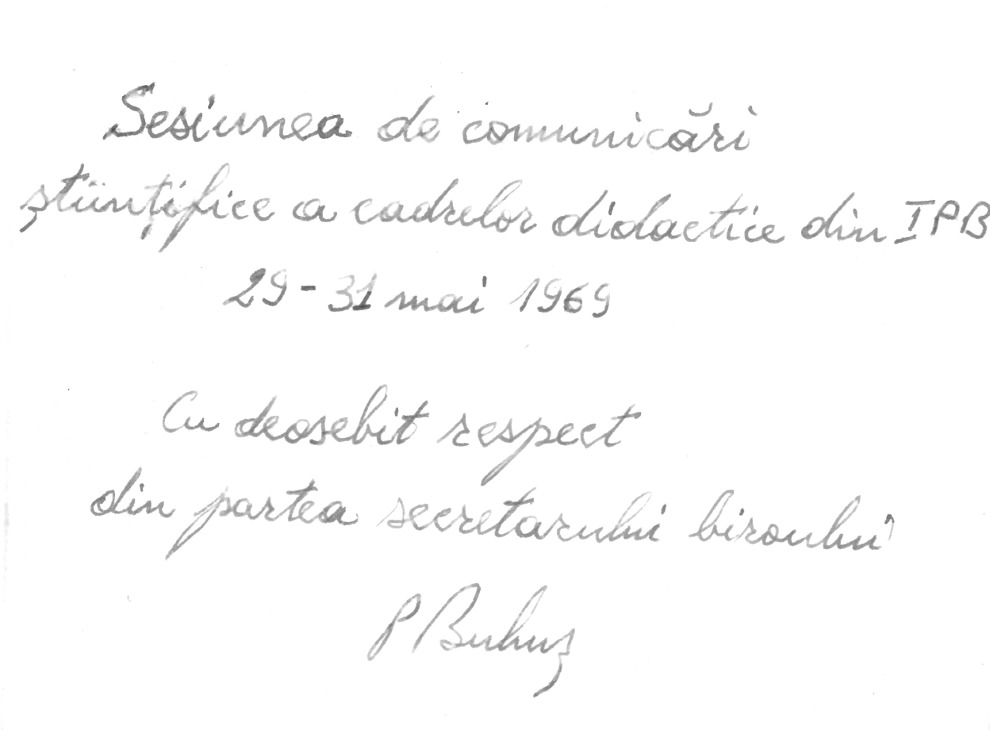 Sesiunea de comunicări
ştiinţifice a cadrelor didactice din IPB
29-31 mai 1969
Cu deosebit respect
din partea secretarului biroului
P